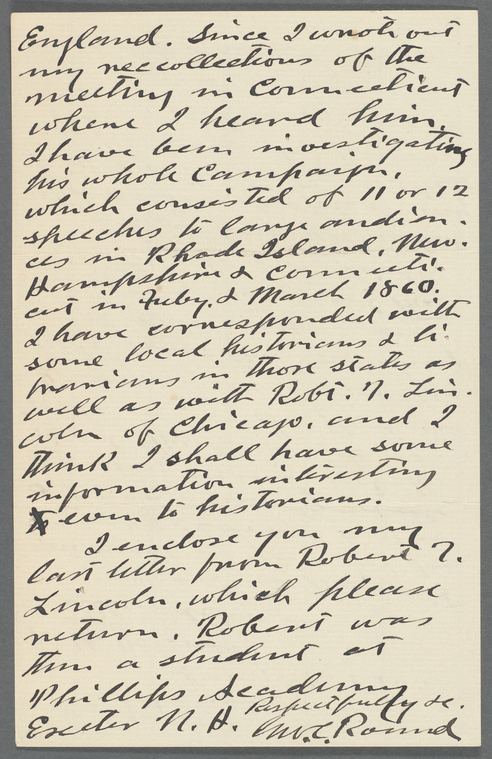 England. Since I wrote out
my reccollections of the
meeting in Connecticut
where I heard him,
I have been investigating
his whole Campaign,
which consisted of 11 or 12
speeches to large audien-
ces in Rhode Island, New-
Hampshire & Connecti-
cut in Feby. & March 1860.
I have corresponded with
some local historians & li-
brarians in those states as
well as with Robt. T. Lin-
coln of Chicago, and I
think I shall have some
information interesting
even to historians.
I enclose you my
last letter from Robert T.
Lincoln, which please
return. Robert was
then a student at
Phillips Academy
Exeter N. H.
Respectfully &c.
Round